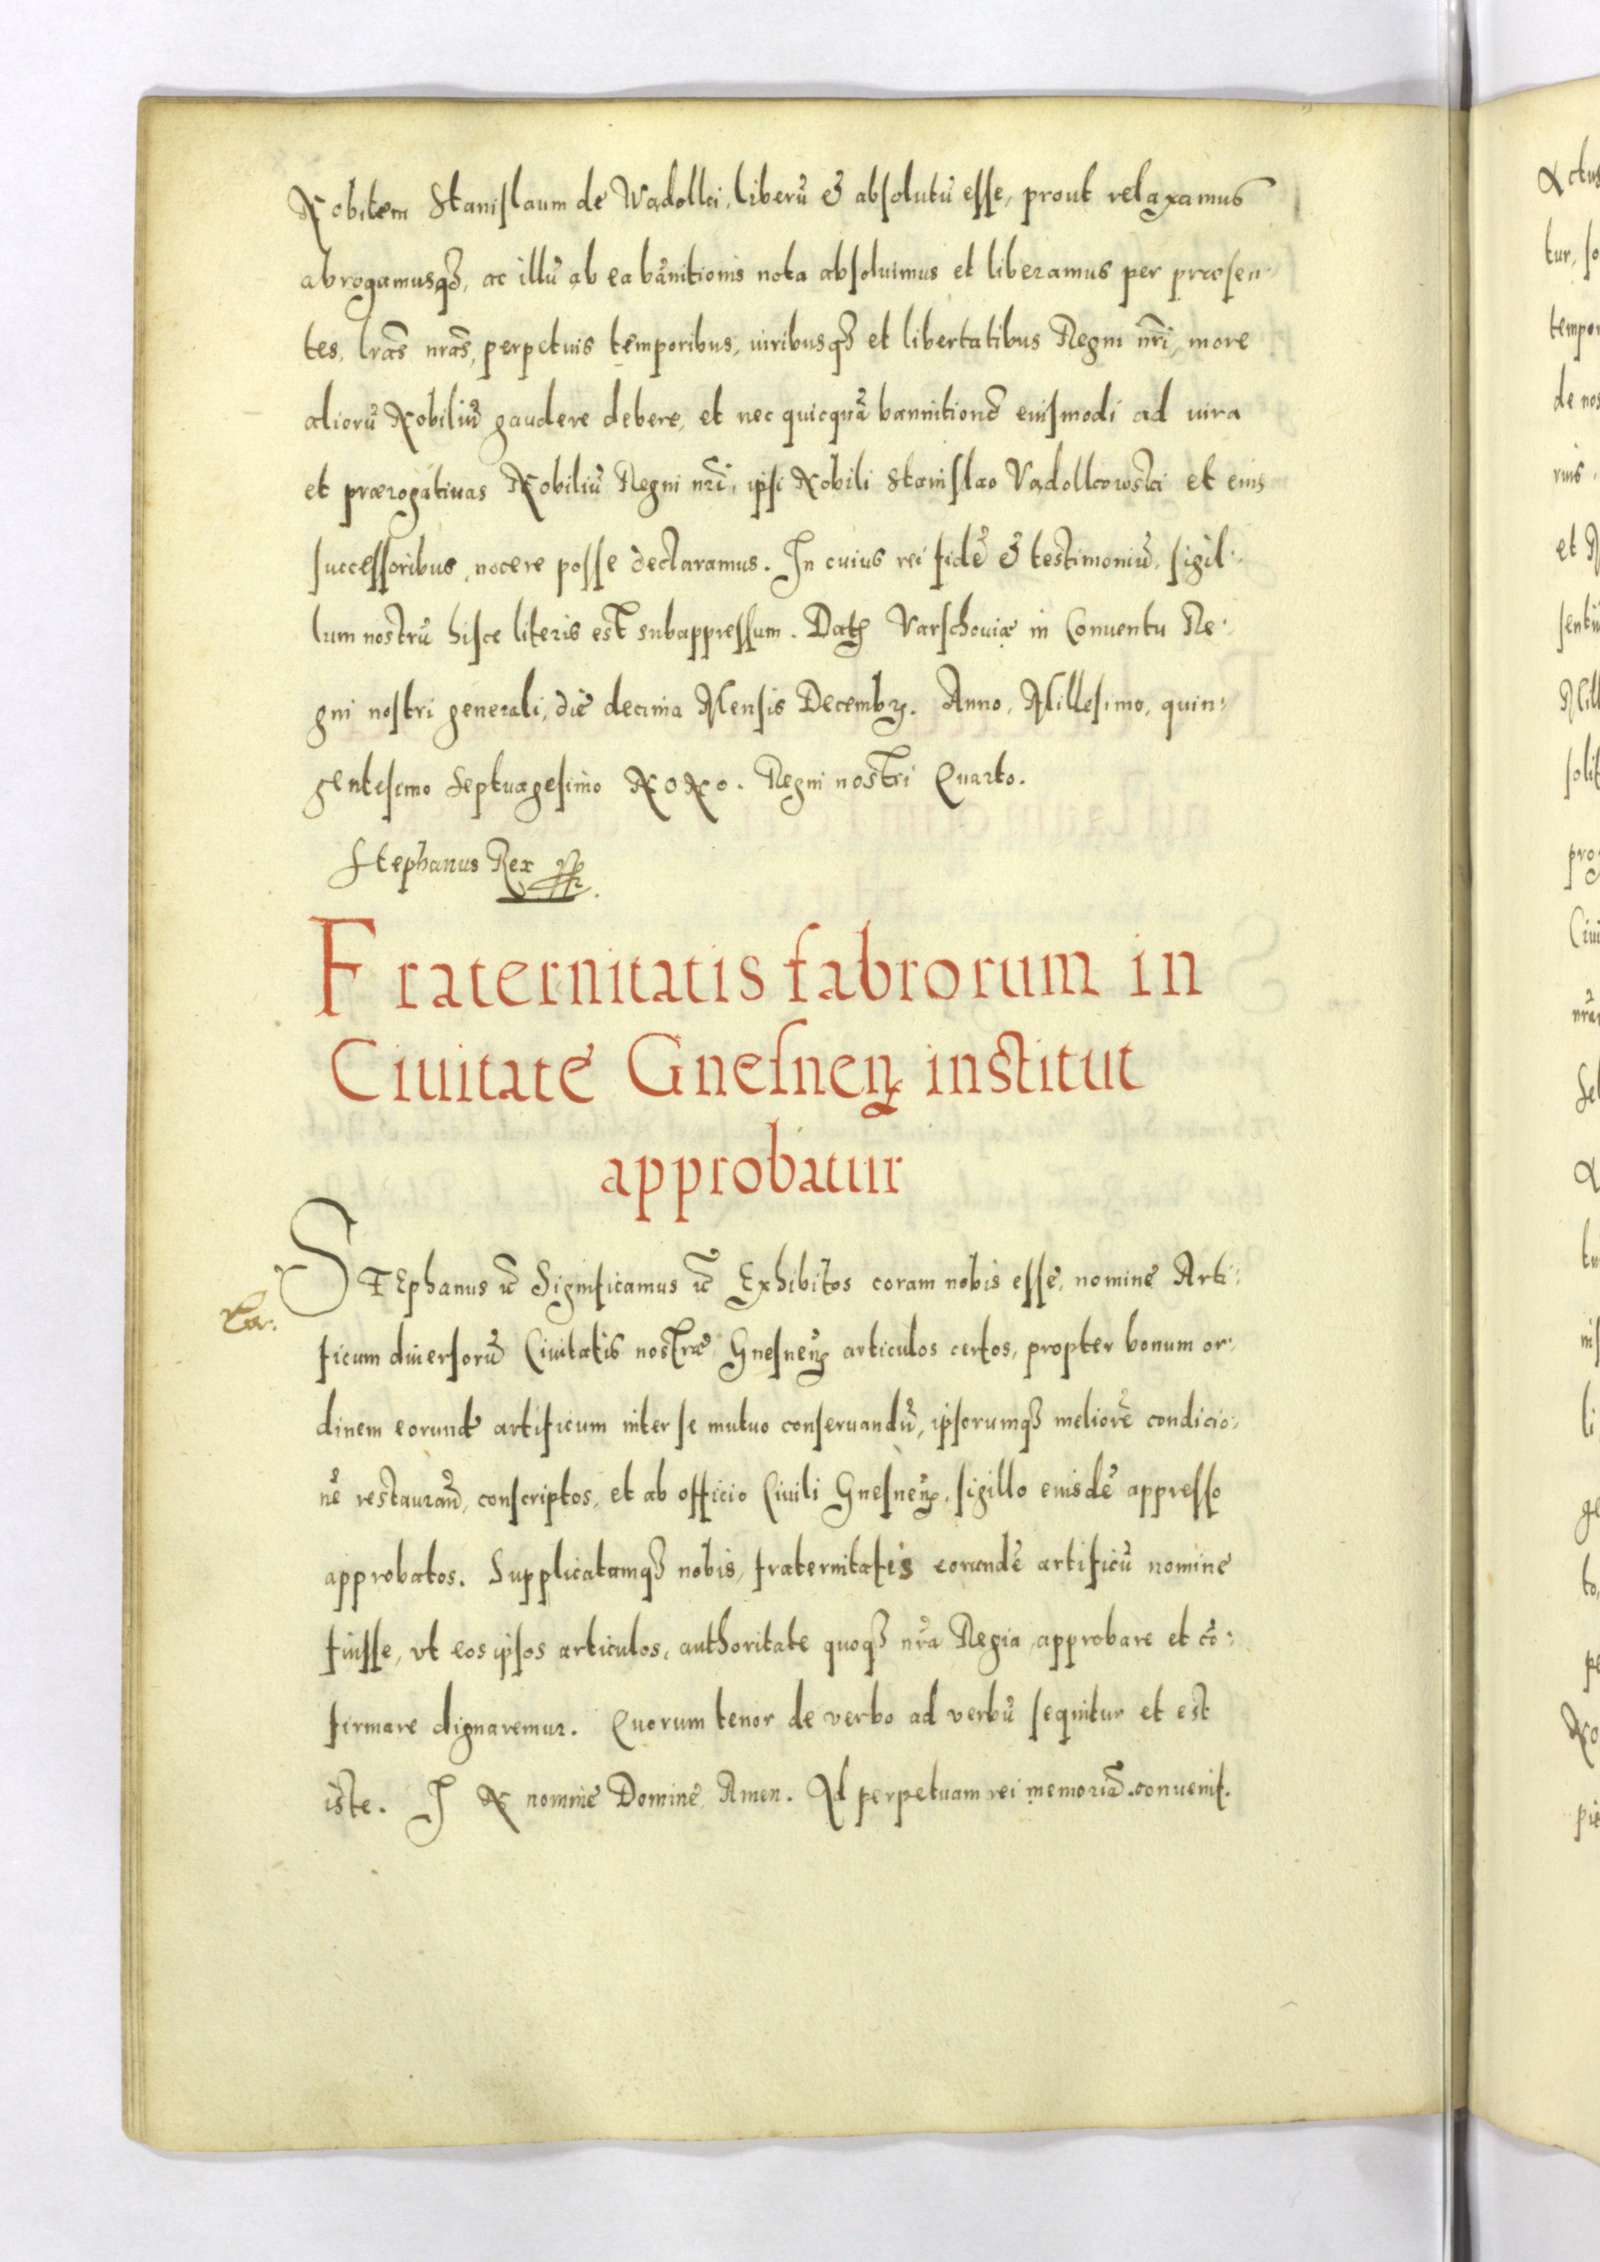 Nobilem Stanislaum de Wadolki, liberũ & absolutũ esse, prout relaxamus
abrogamusq3, ac illũ ab ea bãnitionis nota absoluimus et liberamus per præsen-
tes, lrãs nrãs, perpetuis temporibus, iuribusq3 et libertatibus Regni nrĩ, more
aliorũ Nobiliũ gaudere debere, et nec quicquã bannitionẽ eiusmodi ad iura
et prærogatiuas Nobiliũ Regni nrĩ, ipsi Nobili Stanislao Vadolkowski et eius
successoribus, nocere posse declaramus. In cuius rei fidẽ & testimoniũ, sigil-
lum nostrũ hisce literis est subappressum. Datꝭ Varschouiæ in Conuentu Re-
gni nostri generali, die decima Mensis Decembrꝭ. Anno, Millesimo, quin-
gentesimo Septuagesimo NoNo. Regni nostri Quarto.
Stephanus Rex
Fraternitatis fabrorum in
Ciuitate Gnesnenꝭ institut
approbatur
STEphanus ũc Significamus ũc Exhibitos coram nobis esse, nomine Arti-
ficum diuersorũ Ciuitatis nostræ Gnesnenꝭ articulos certos, propter bonum or-
dinem eorundẽ artificum inter se mutuo conseruandũ, ipsorumq3 meliorẽ condicio-
nẽ restaurandũ, conscriptos, et ab officio Ciuili Gnesnenꝭ, sigillo eiusdẽ appresso
approbatos. Supplicatumq3 nobis, fraternitatis eorundẽ artificũ nomine
fuisse, vt eos ipsos articulos, authoritate quoq3 nrã Regia approbare et cõ-
firmare dignaremur. Quorum tenor de verbo ad verbũ sequitur et est
iste. IN nomine Domine Amen. Ad perpetuam rei memoriã. conuenit.